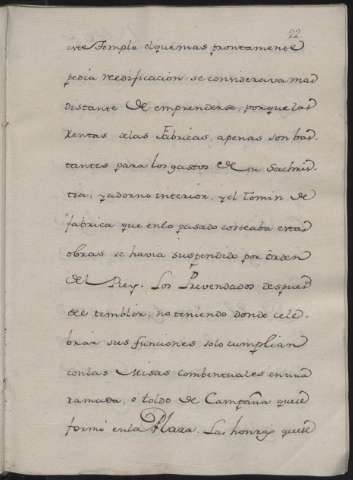 22
este Templo el que mas prontamente
pedia reedificacion se considerava mas
distante de emprenderse, porque las
rentas de las Fabricas, apenas son bas-
tantes para los gastos de su Sachris-
tia, y adorno interior, y el Tomin de
fabrica que en lo pasado costeaba estas
obras se havia suspendido por orden
del Rey. Los Prevendados despues
del temblor, no teniendo donde cele-
brar sus funciones, solo cumplian
con las Misas combentuales en una
ramada, o toldo de Campaña que se
formó en la Plaza. Las honras que se